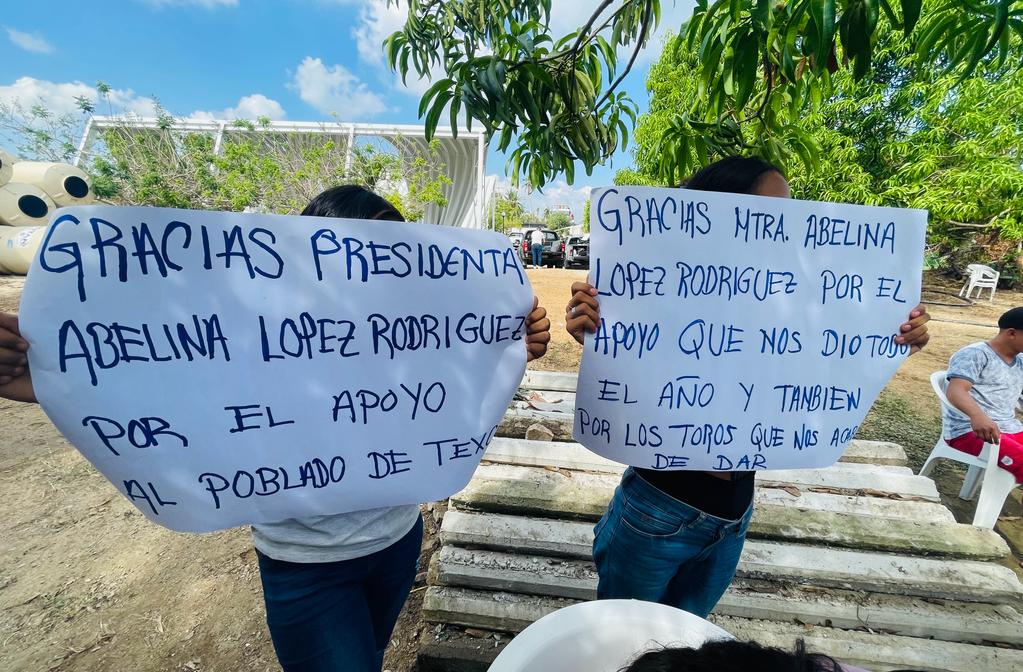 GRACIAS PRESIDENTA
ABELINA LOPEZ RODRIGUEZ
POR EL APOYO
AL POBLADO DE
GRACIAS MTRA. ABELINA
LOPEZ RODRIGUEZ POR EL
APOYO QUE NOS DIO TODO
EL AÑO Y TANBIEN
POR LOS TOROS QUE NOS
DE DAR